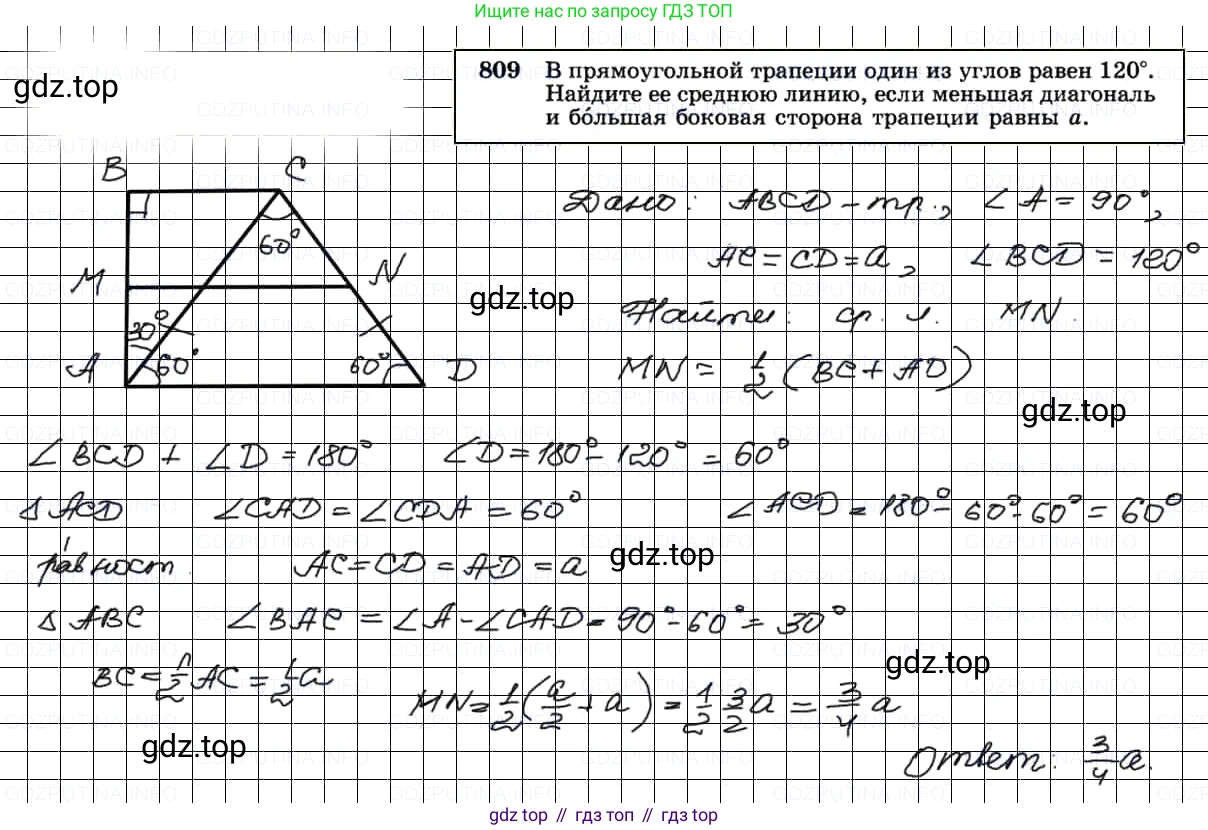 Ищите нас по запросу ГДЗ ТОП
gdz.top
809 В прямоугольной трапеции один из углов равен 120°.
Найдите ее среднюю линию, если меньшая диагональ
и бо́льшая боковая сторона трапеции равны a.
B C
60°
M N
30°
A 60° 60° D
Дано: ABCD – тр., ∠A = 90°,
AC = CD = a, ∠BCD = 120°
gdz.top
Найти: ср. л. MN.
MN = 1/2 (BC + AD)
gdz.top
∠BCD + ∠D = 180° ∠D = 180° – 120° = 60°
△ACD ∠CAD = ∠CDA = 60° ∠ACD = 180° – 60° – 60° = 60°
равност. AC = CD = AD = a gdz.top
△ABC ∠BAC = ∠A – ∠CAD = 90° – 60° = 30°
gdz.top
BC = 1/2 AC = 1/2 a
MN = 1/2 (a/2 + a) = 1/2 3/2 a = 3/4 a
gdz.top
Ответ: 3/4 a.
gdz top // гдз топ // gdz top